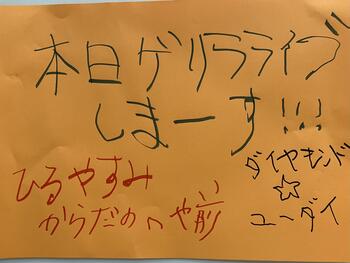 本日ゲリラライブ
しまーす!!!
ひるやすみ
からだのへや前
ダイヤモンド
☆
ユーダイ